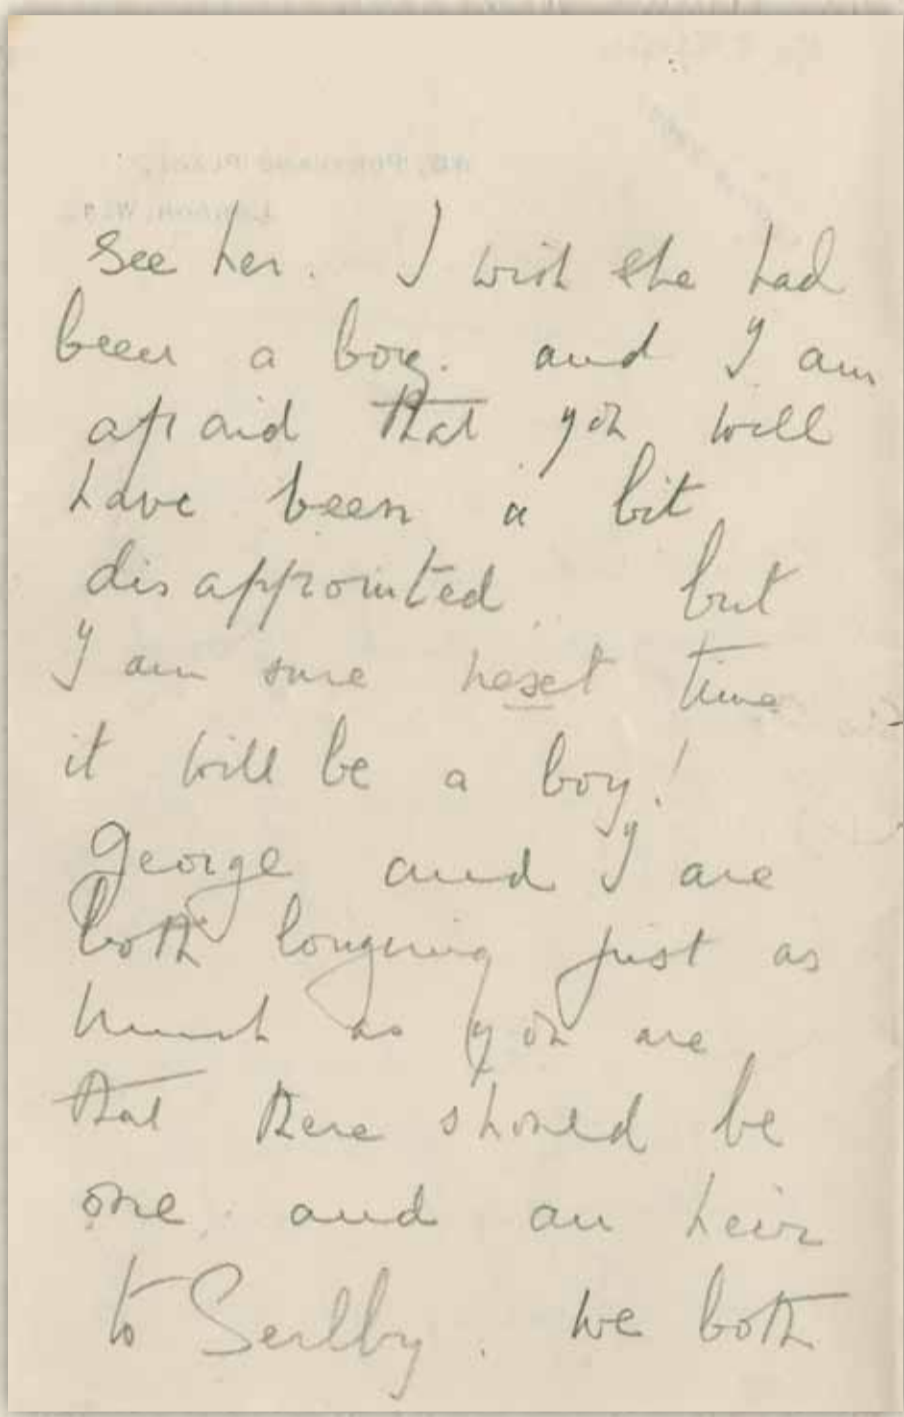 see her. I wish she had
been a boy. and I am
afraid that you will
have been a bit
disappointed. but
I am sure next time
it will be a boy!
George and I are
both longing just as
much as you are
that there should be
one. and an heir
to Serlby. We both